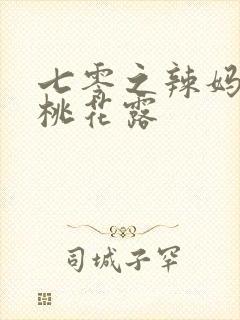 七零之辣妈
桃花露
司城子罕